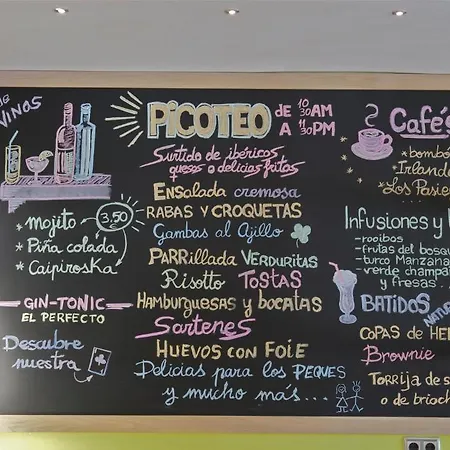 VINOS
mojito
3,50
Piña colada
Caipiroska
GIN-TONIC
EL PERFECTO
Descubre
nuestra
PICOTEO
DE 10:30 AM
A 11:30 PM
Surtido de ibéricos
quesos o delicias fritas
ENSALADA cremosa
RABAS Y CROQUETAS
GAMBAS al Ajillo
PARRILLADA VERDURITAS
Risotto TOSTAS
HAMBURGUESAS y bocatas
Sartenes
HUEVOS CON FOIE
Delicias para los PEQUES
y mucho más...
Cafés
bombó
Irlande
Los Pasie
Infusiones y
- rooibos
- frutas del bosq
- turco Manzana
- verde champa
y fresas...
BATIDOS
NATU
COPAS DE HE
Brownie
TORRIJA DE S
o de brioch